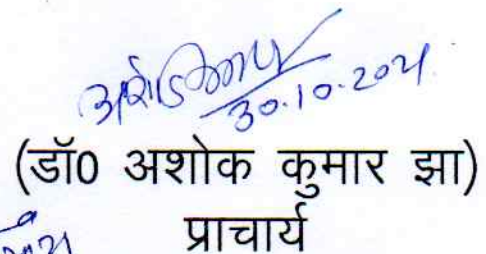 30.10.2021
(डॉ0 अशोक कुमार झा)
प्राचार्य